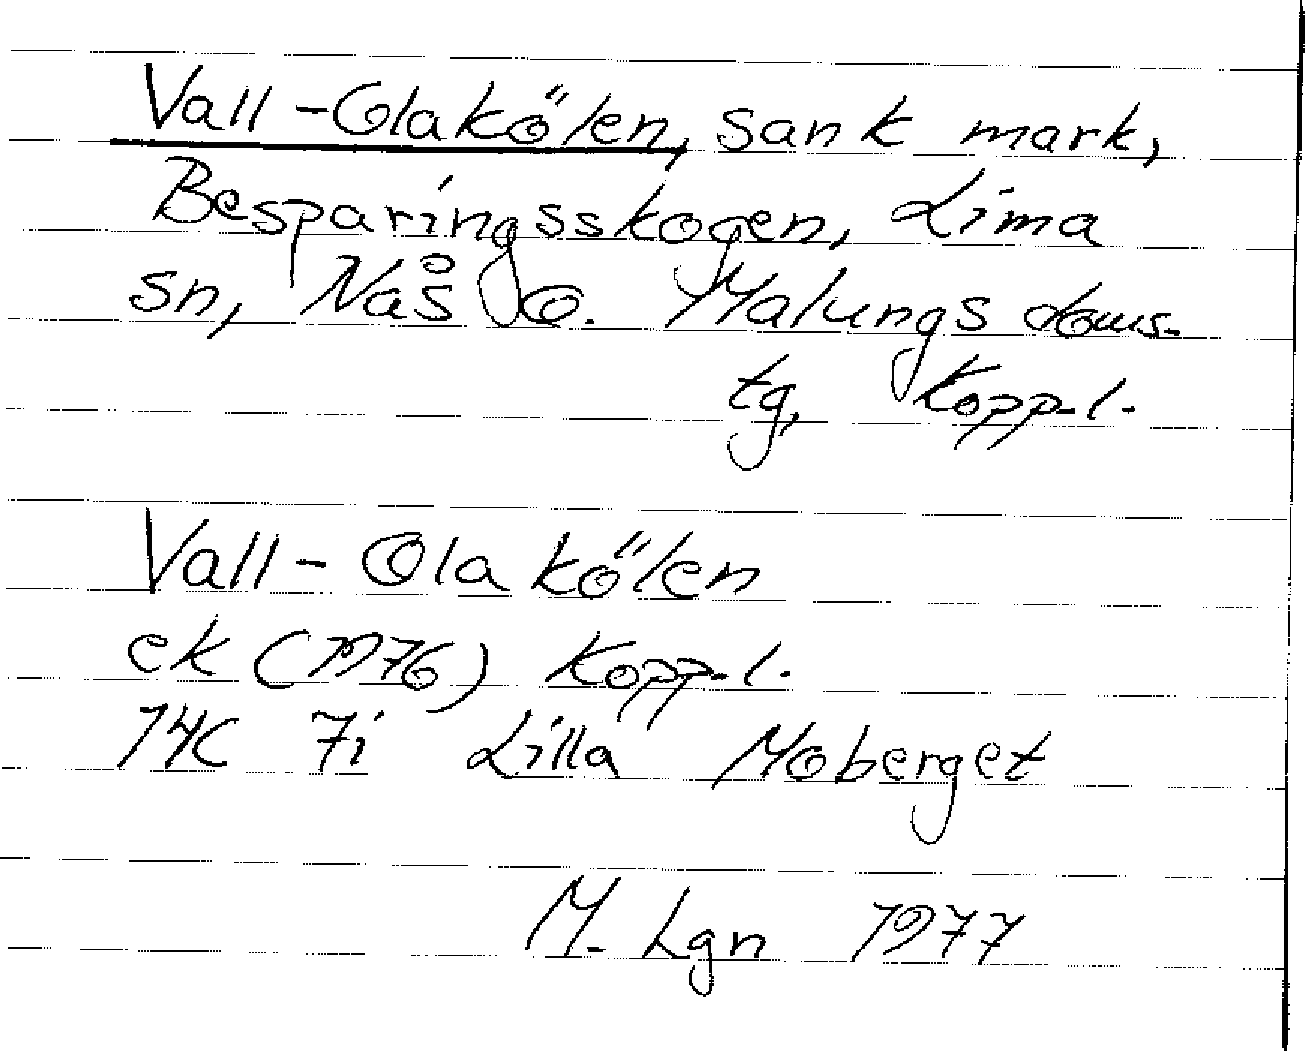 Vall-Olakölen, sank mark,
Besparingsskogen, Lima
sn, Nås o. Malungs doms-
tg, Kopp.l.
Vall-Olakölen
ek (1976) Kopp.l.
14C 7i Lilla Moberget
M. Lgn 1977